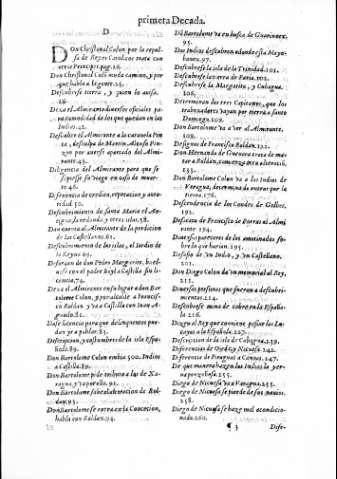 primera Decada.
D
DOn Christoual Colon por la repulsa
de Reyes Catolicos trata con
otros Principes. pag. 16.
Don Christoual Colō muda camino, y por
que habla a la gente. 23.
Descubrese tierra, y quien la auisa.
26.
Dexa el Almirante diuersos oficiales para
comodidad de los que quedan en las
Indias. 42.
Descubre el Almirante a la carauela Pinta
, desculpa de Martin Alonso Pinzon
por auerse apartado del Almirante.
43.
Diligencia del Almirante para que se
supiesse su viage en caso de muerte.
46.
Diferencia de creditos, reputacion, y autoridad.
50.
Descubrimiento de santa Maria el Antigua,
la redonda, y otras islas. 58.
Dan cuenta al Almirante de la perdicion
de los Castellanos. 61.
Descubrimiento de las islas, el Iardin de
la Reyna. 69.
Desorden de don Pedro Margarite, buelue
con el padre Buyl a Castilla sin licencia.
74.
Dexa el Almirante en su lugar a don Bartolome
Colon, y por alcalde a Francisco
Roldan y va a Castilla con Iuan Aguado.
81.
Dase licencia para que delinquentes puedan
yr a poblar. 85.
Descripcion, y costumbres de la isla Española.
85.
Don Bartolome Colon embia 300. Indios
a Castilla. 89.
Don Bartolome pide tributo a los de Xaragua,
y lo que ello. 91.
Don Bartolome sabe la alteracion de Roldan.
93.
Don Bartolome se entra en la Concecion,
habla con Roldan. 94.
Dō Bartolome va en busca de Guarinoex.
95.
Dos Indias descubren adonde esta Mayobanex.
97.
Descubrese la isla de la Trinidad. 101.
Descubrese la tierra de Paria. 102.
Descubrese la Margarita, y Cubagua.
106.
Determinan los reyes Capitanes, que los
trabaxadores vayan por tierra a santo
Domingo. 109.
Don Bartolome va a ver al Almirante.
109.
Designos de Francisco Roldan. 122.
Don Hernando de Gueuara trata de matar
a Roldan, comiençase otra alteracion.
133.
Don Bartolome Colon va a los Indios de
Veragua, determina de entrar por la
tierra. 176.
Descendencia de los Condes de Gelbes.
191.
Desacato de Francisco de Porras al Almirante
194.
Diuersos pareceres de los amotinados sobre
lo que harian. 195.
Desafio de vn Indio, y vn Castellano.
201.
Don Diego Colon da vn memorial al Rey.
211.
Diuersas personas que fueron a descubrimientos.
214.
Descubrese mina de cobre en la Española
216.
Dizen al Rey que conuiene passar los Lucayos
a la Española. 227.
Descripcion de la isla de Cubagua. 239.
Diferencias de Ojeda y Nicuesa. 242.
Diferencias de Piraguas a Canoas. 247.
De que manera hazen los Indios la yerua
ponçoñosa. 255.
Diego de Nicuesa va a Veragua. 255.
Diego de Nicuesa se pierde de sus nauios.
258.
Diego de Nicuesa se haze mal acondicionado.
260.
¶ 3
Dife-